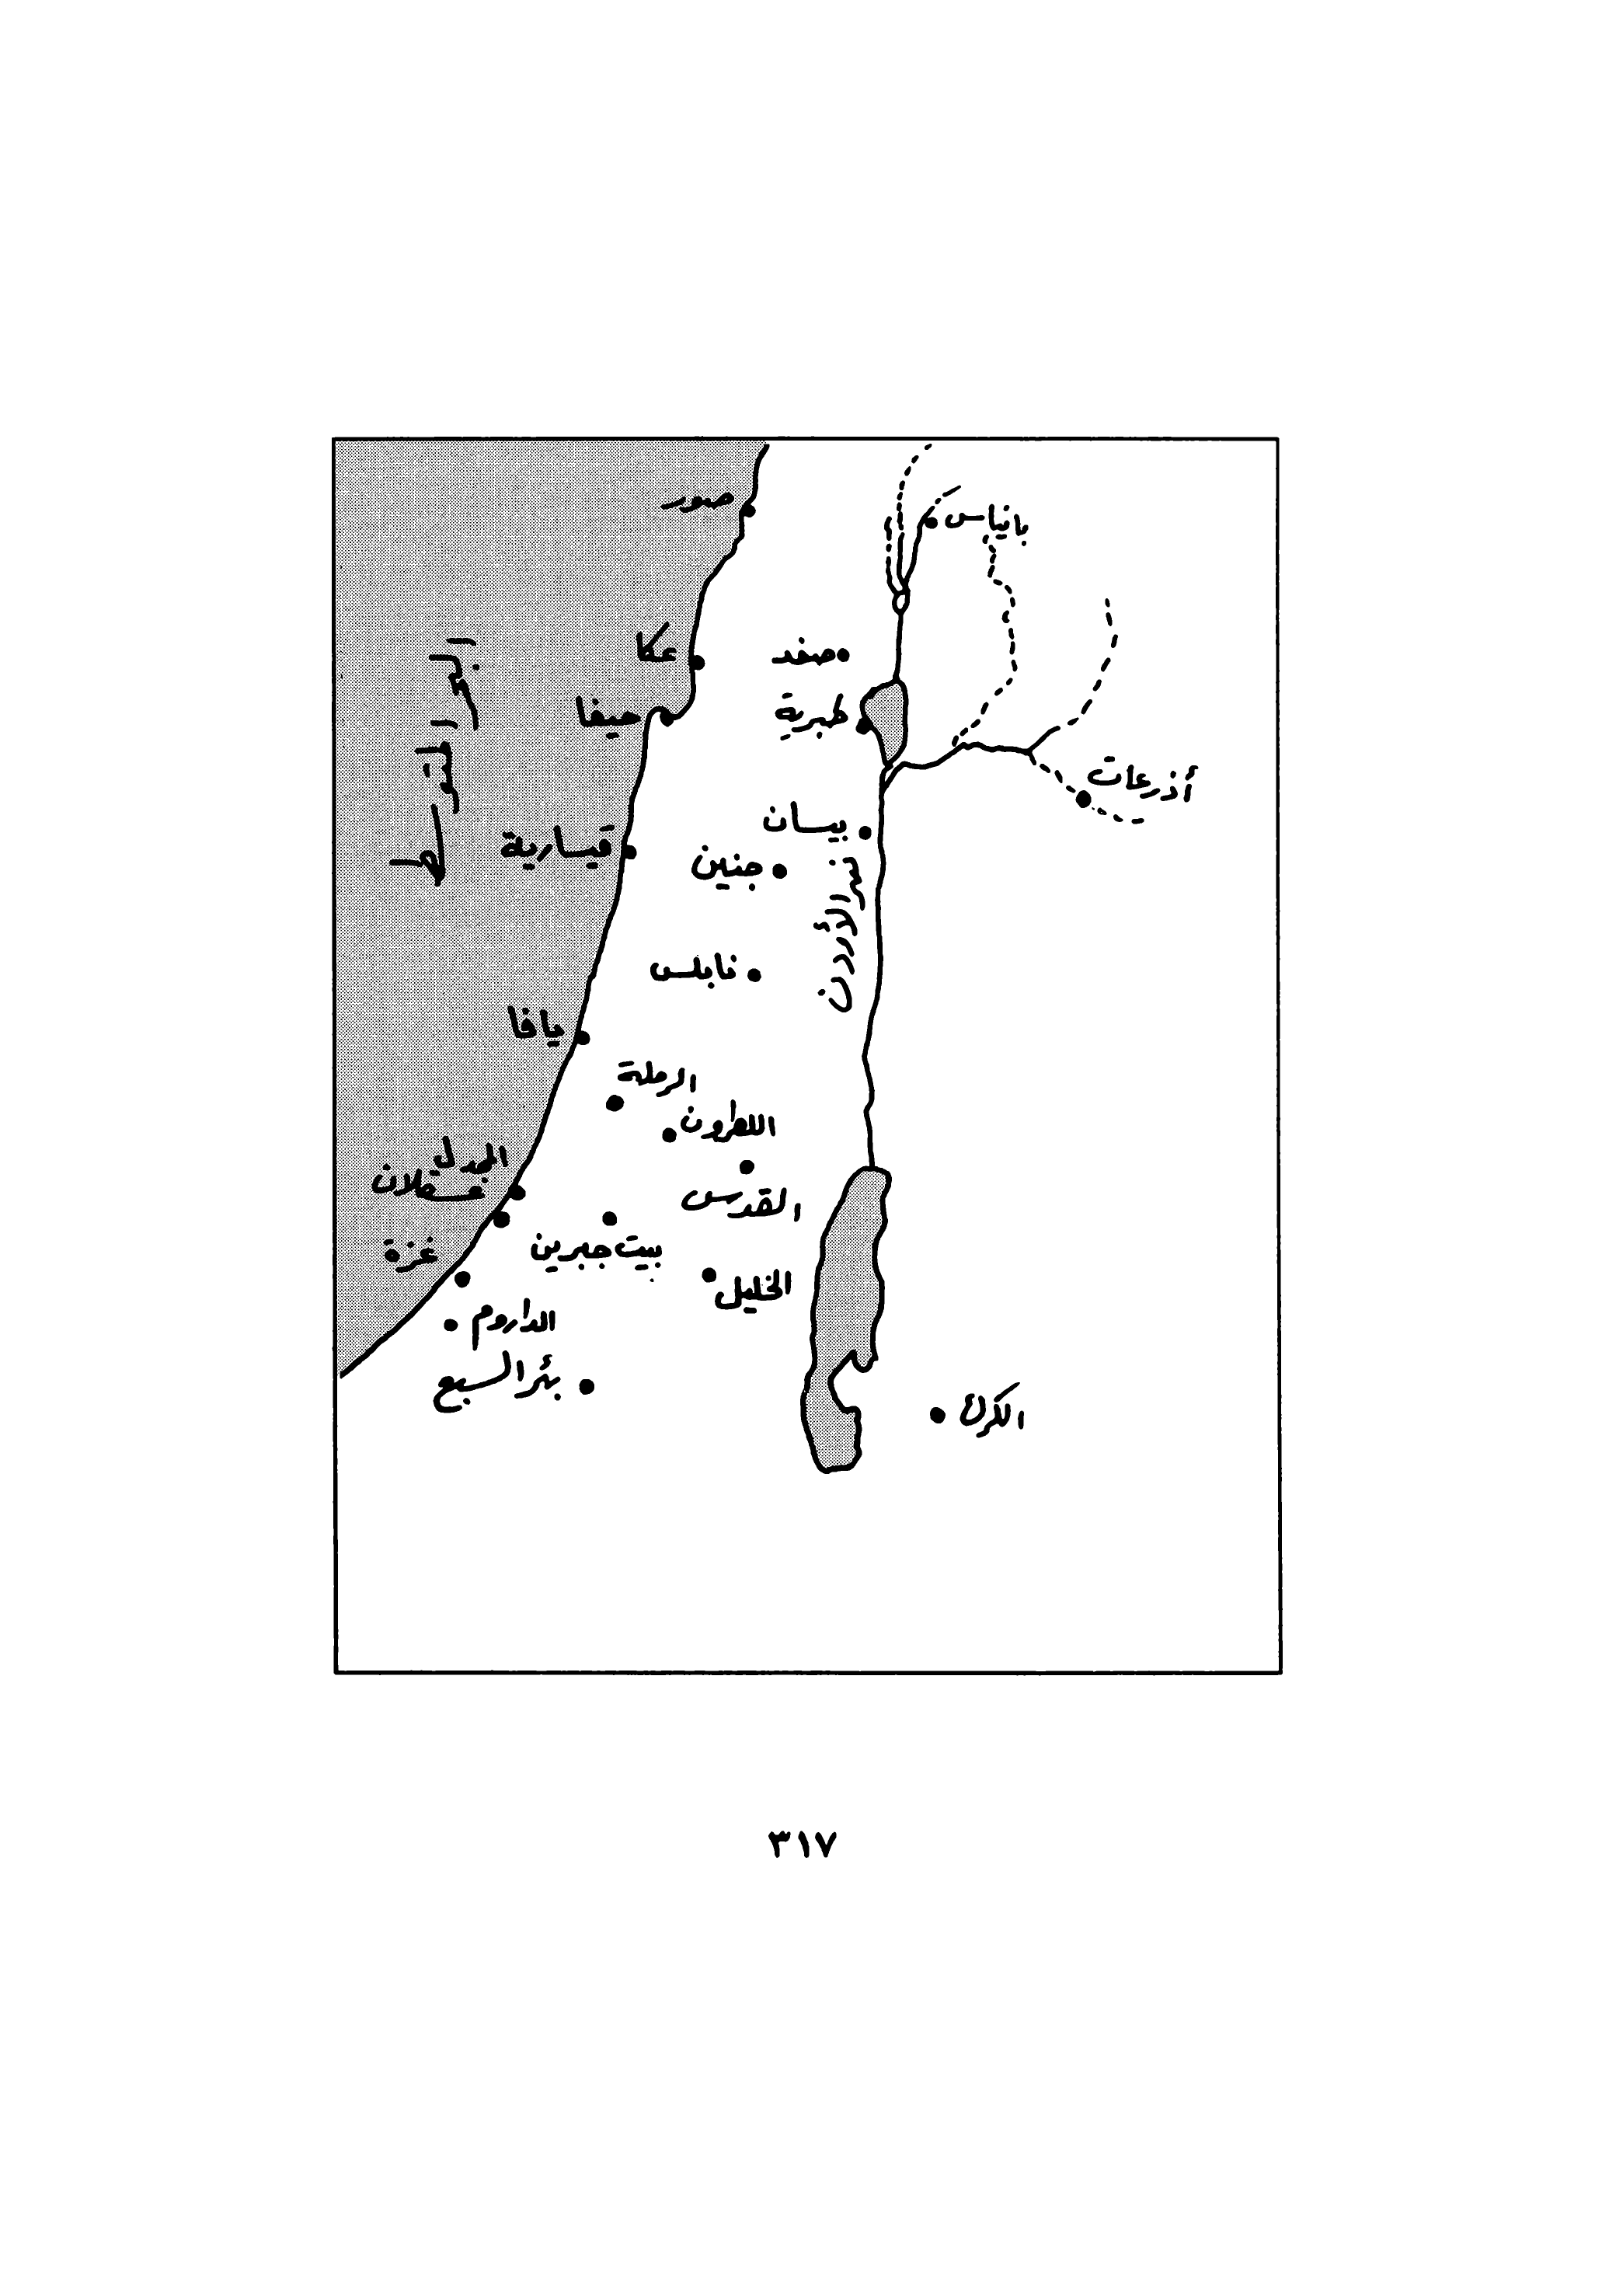 صور
بانياس
عكا
صفد
البحر المتوسط
حيفا
طبرية
أذرعات
بيسان
قيسارية
جنين
نهر الأردن
نابلس
يافا
الرملة
اللطرون
المجدل
عسقلان
القدس
غزة
بيت جبرين
الخليل
الداروم
بئر السبع
الكرك
٣١٧